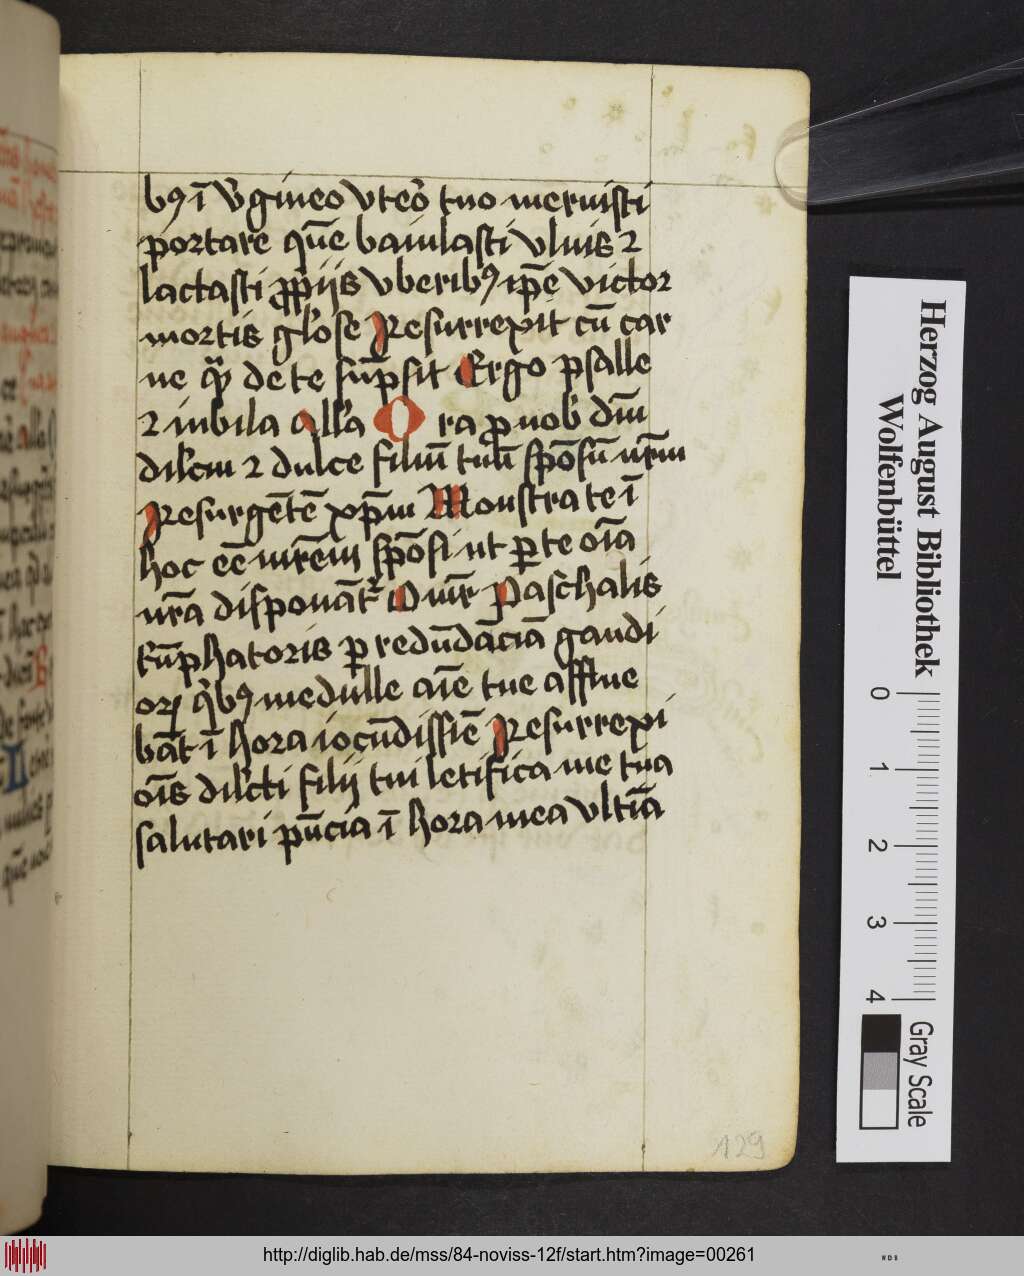 bꝫ ī v̓gineo vteo̓ tuo meruisti
portare qūe baiulasti vlnis ⁊
lactasti ꝓpijs vberibꝫ ip̄e victor
mortis glo̓se Resurrexit cū car
ne qͣꝫ de te sūpsit Ergo psalle
⁊ iubila all̓a Ora ꝓ nob̓ dm̄
dilc̓m ⁊ dulce filiū tuū spōsū nr̄m
Resurgētē xp̄m Monstra te ī
hoc eē mrēm spōsi ut ꝑ te oīa
nr̄a disponāt᷑ Paschalis
tūphatoris ꝑ redūdāciā gaudi
oꝝ qͥbꝫ medulle aīe tue afflue
bāt ī hora iocūdissīe Resurrexi
oīs dilc̓ti filij tui letifica me tua
salutari pn̄cia ī hora mea vltīa
129
Herzog August Bibliothek
Wolfenbüttel
0 1 2 3 4
Gray Scale
http://diglib.hab.de/mss/84-noviss-12f/start.htm?image=00261
WDB